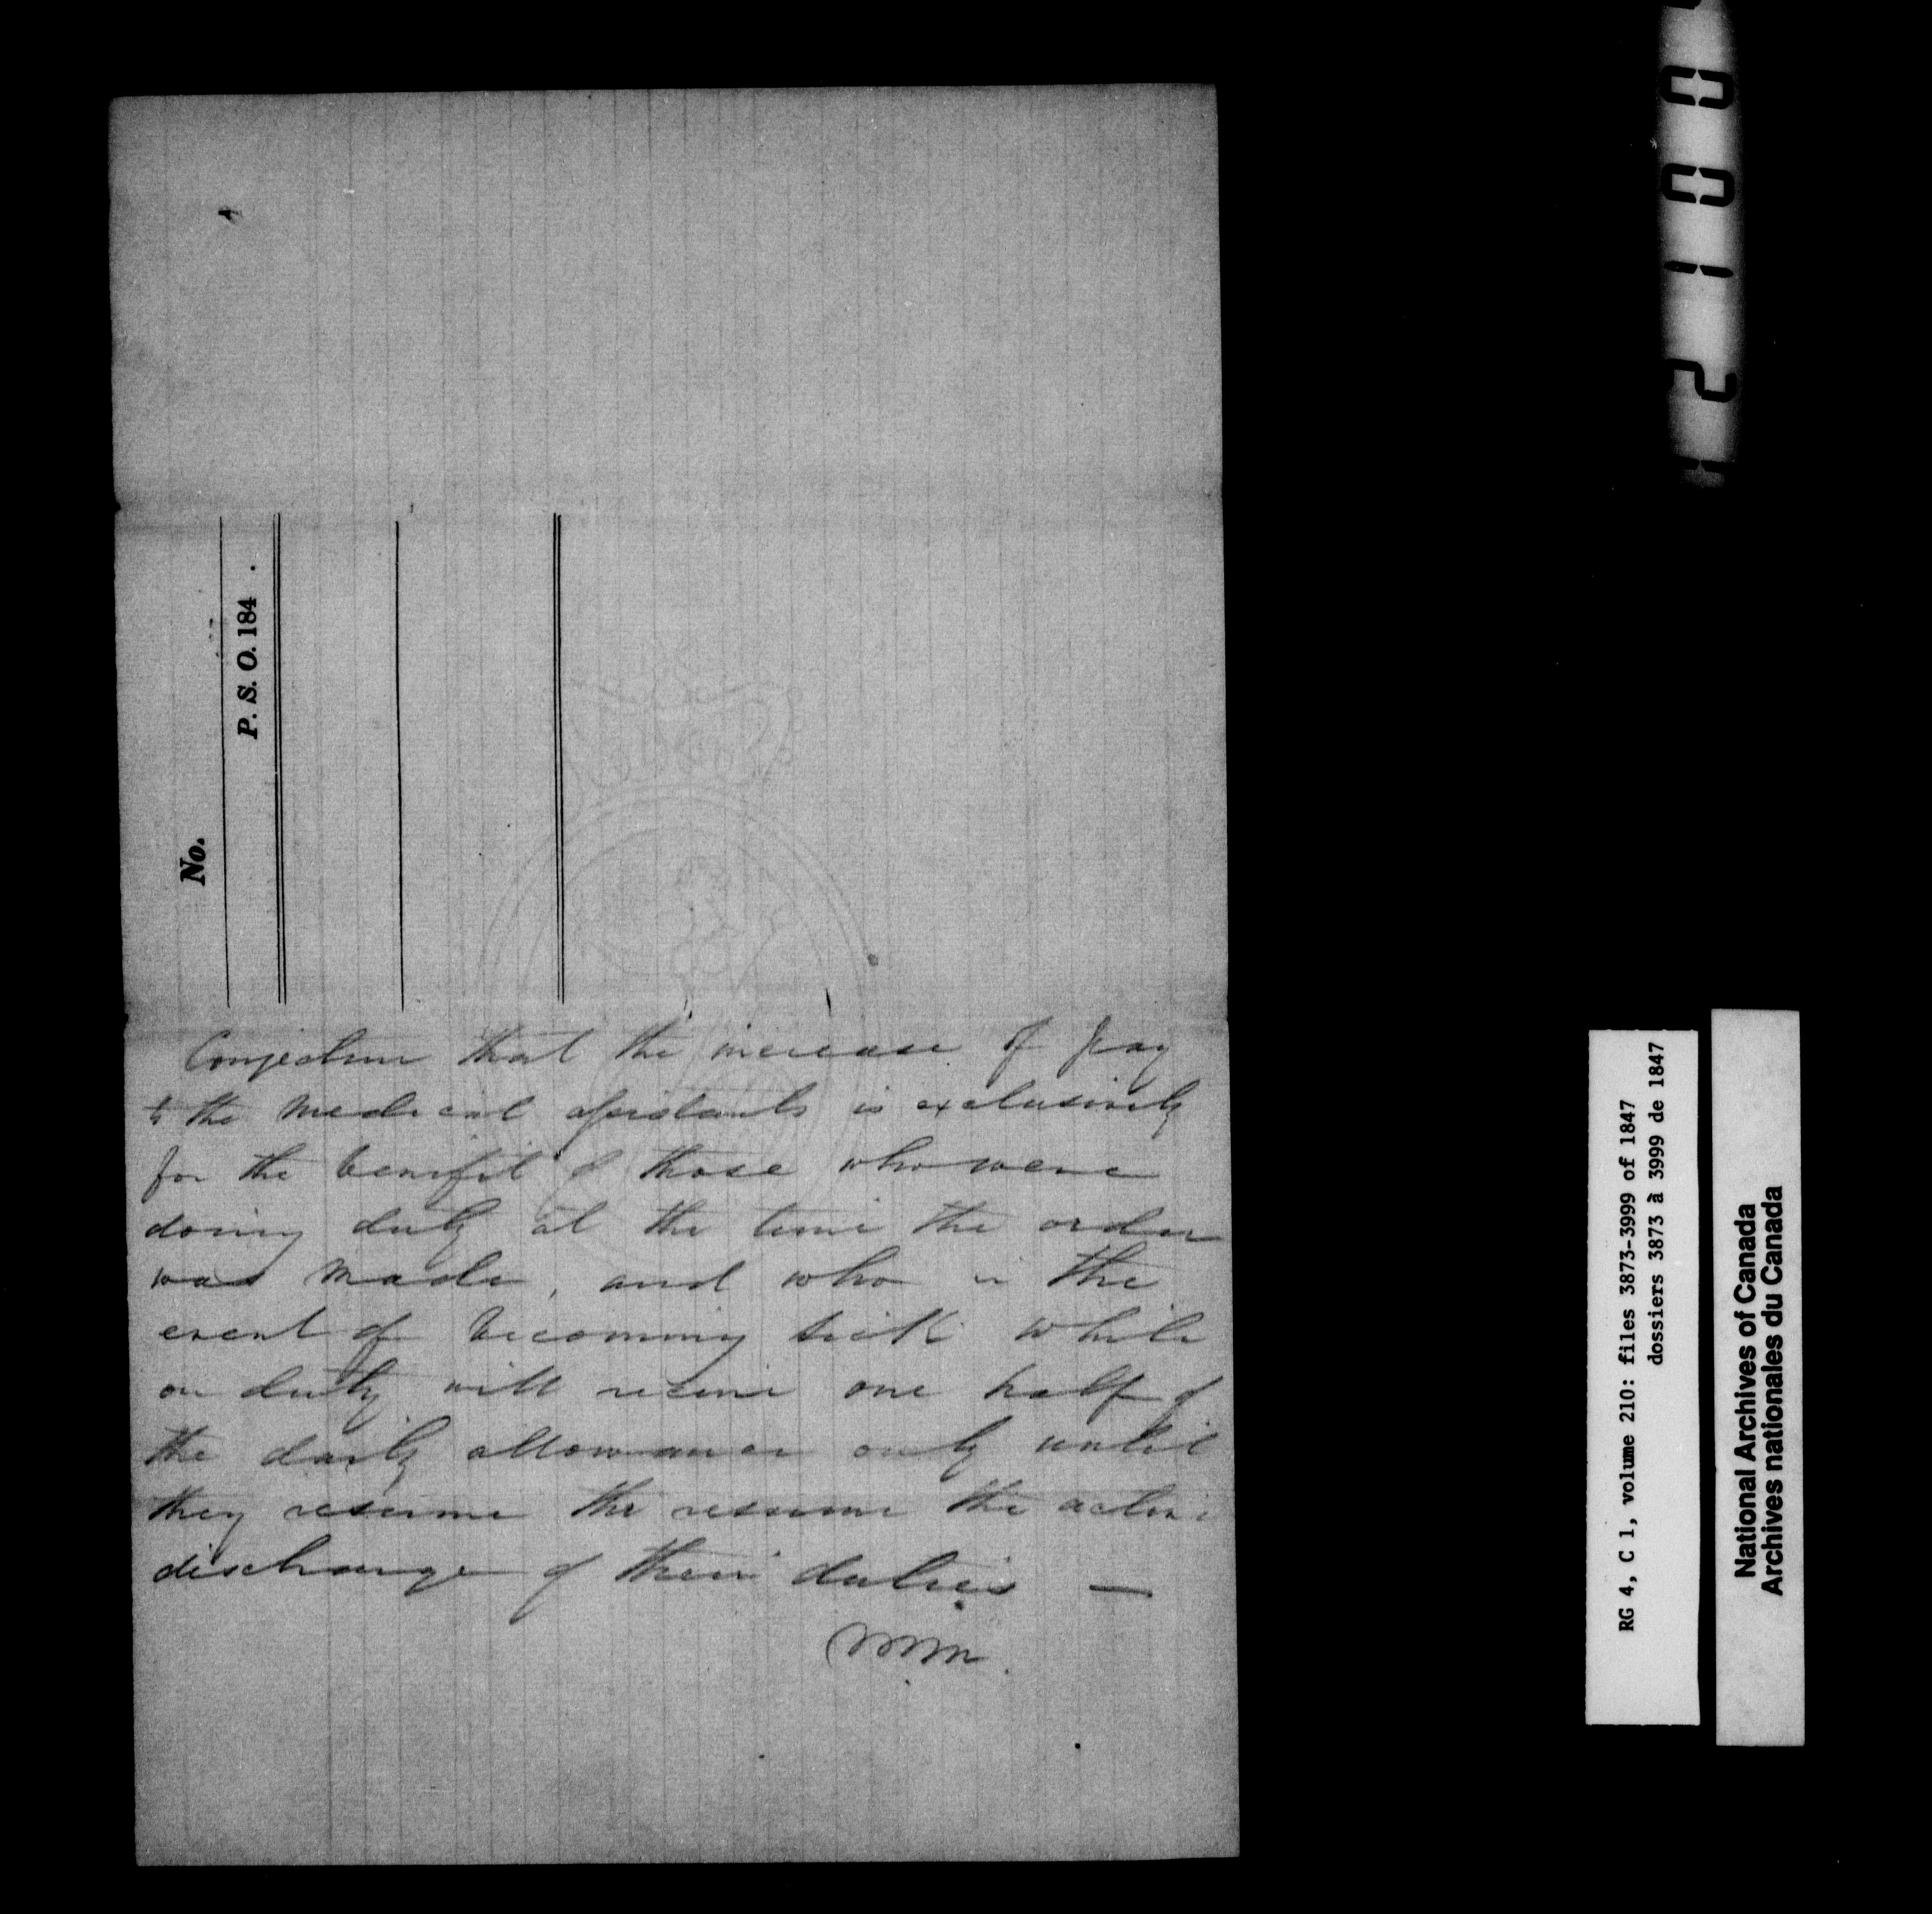 No.
P. S. O. 184 .
Conjecture that the increase of pay
to the Medical assistants is exclusively
for the benefit of those who were
doing duty at the time the order
was made, and who in the
event of becoming sick while
on duty will receive one half of
the daily allowance only until
they resume the resume the active
discharge of their duties —
2100
RG 4, C 1, volume 210: files 3873-3999 of 1847
dossiers 3873 à 3999 de 1847
National Archives of Canada
Archives nationales du Canada